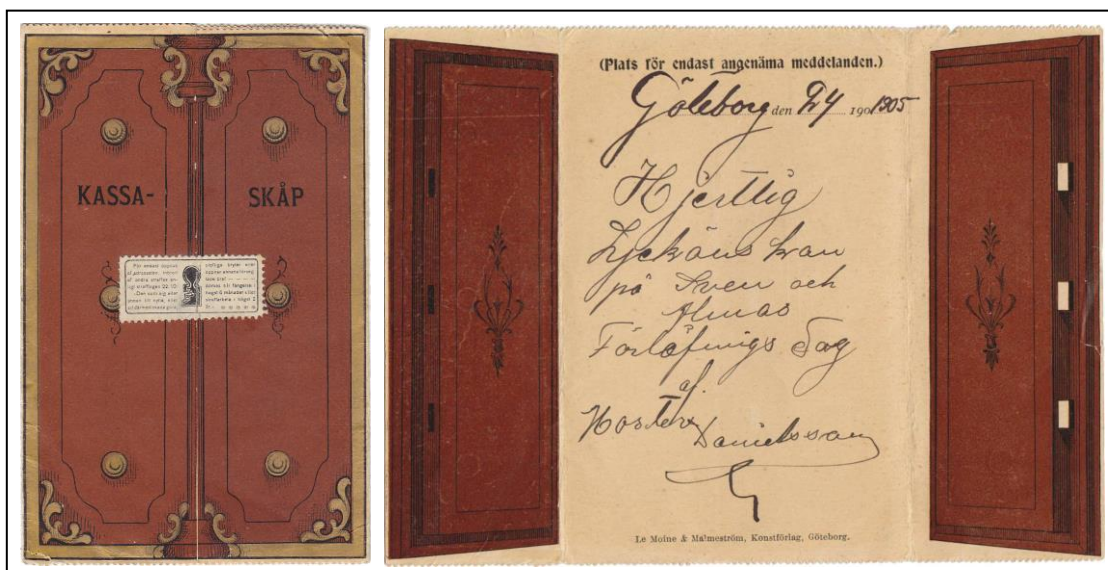 KASSA- SKÅP
(Plats för endast angenäma meddelanden.)
Göteborg den 24 190 1905
Hjertlig
Lyckönskan
på Sven och
Almas
Förlofnings Dag
af
Moster Danielsson
Le Moine & Malmeström, Konstförlag, Göteborg.